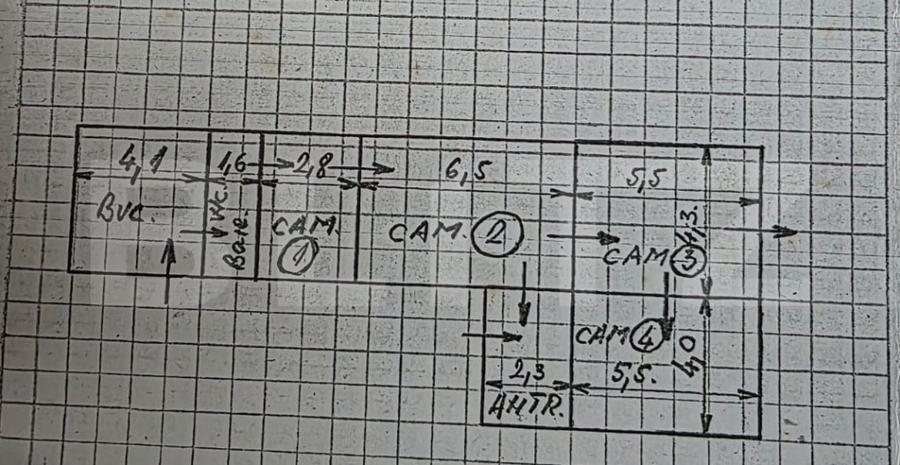 4,1
1,6
2,8
6,5
5,5
Buc.
Wc.
Baie.
CAM.
1
CAM. 2
CAM 3
4,3.
CAM 4
4,0
2,3
5,5.
AHTR.